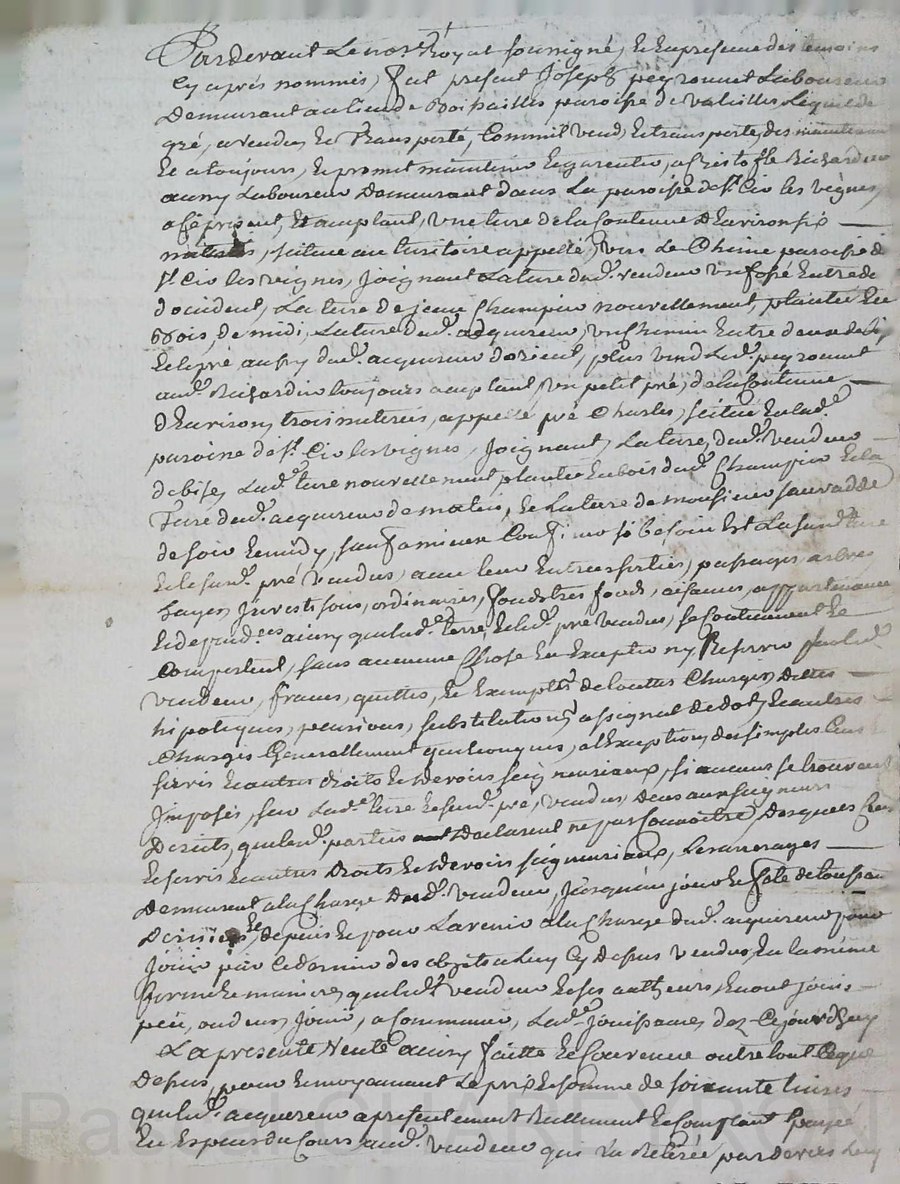 Pardevant le not.re Royal soussigné, et en presence des temoins
cy après nommés, fut présent Joseph peyronnet Laboureur
Demeurant au lieu de paroisse de Lequel de
gré, a vendu et Transporté, Comm'il vend et transporte, dès maintenant
et a toujours, et promet maintenir et garentir, a Christofle Richardier
aussy Laboureur Demeurant dans La paroisse de St. Cir les vignes,
a ce présent, et acceptant, une terre de la Contenue D'Environ six
scituée au territoire appellé, vers Le Chêne paroisse de
St. Cir les vignes, Joignant La terre dud. vendeur un fossé Entre deux
d'occident, La terre de jean Champier nouvellement, plantée En
Bois, de midi, La terre dud. acquereur, un Chemin Entre deux de
et le pré aussy dud. acquereur d'orient, plus vend Led. peyronnet
aud. Richardier toujours acceptant, un petit pré, de la Contenue
D'Environ trois meterées, appellé pré Charles, scitué En lad.e
paroisse de St. Cir les vignes, Joignant, La terre, dud. vendeur
de bise, Lad.e terre nouvellement plantée En bois dud. Champier Et la
Terre dud. acquereur de matin, Et La terre de monsieur
de soir Et midy, sauf a mieux Confiner si besoin Est La susd. terre
Et le susd. pré vendus, avec leurs Entrées sorties, passages, arbres
hayes, Investisons, ordinaires, fonds tres fonds, aisances, appartenances
Et dependences ainsy que lad.e terre, Et led. pré vendus, se Contiennent Et
Comportent, sans aucune Chose En Excepter ny Reserver par led.
vendeur, francs, quittes, Et Exempts de touttes Charges, Dettes
hipoteques, pensions, substitutions, assignat de dot, Et autres
Charges Generallement quelconques, a l'Exception des simples Cens Et
servis Et autres droits Et devoirs seigneuriaux, si aucuns se trouvent
Imposés, sur Lad.e terre Et susd. pré, vendus, Deus aux seigneurs
Directs, que lesd. parties Declarent ne pas Connoitre, Desquels Cens
Et servis Et autres Droits Et Devoirs seigneuriaux, Les arrerages
Demeurent a la Charge Dud. vendeur, Jusqu'au jour Et fete de toussaint
Derniere, Et depuis Et pour L'avenir a la Charge dud. acquereur pour
Jouir par Ce dernier des objets a Luy Cy Dessus vendus, En la même
forme Et maniere que led. vendeur Et ses autheurs, En ont joui,
peu, ou deu Jouir, a Commencer, Lad.e Jouissance, dez Cejourd'huy
La presente Vente ainsy faitte Et Convenue outre tout Ce que
Dessus, pour Et moyennant Le prix Et somme de soixante livres
que led. acquereur a présentement Réellement Et Comptant payée
En Especes du Cours aud. vendeur qui L'a Retirée pardevers Luy
Pascal CHAREYRON